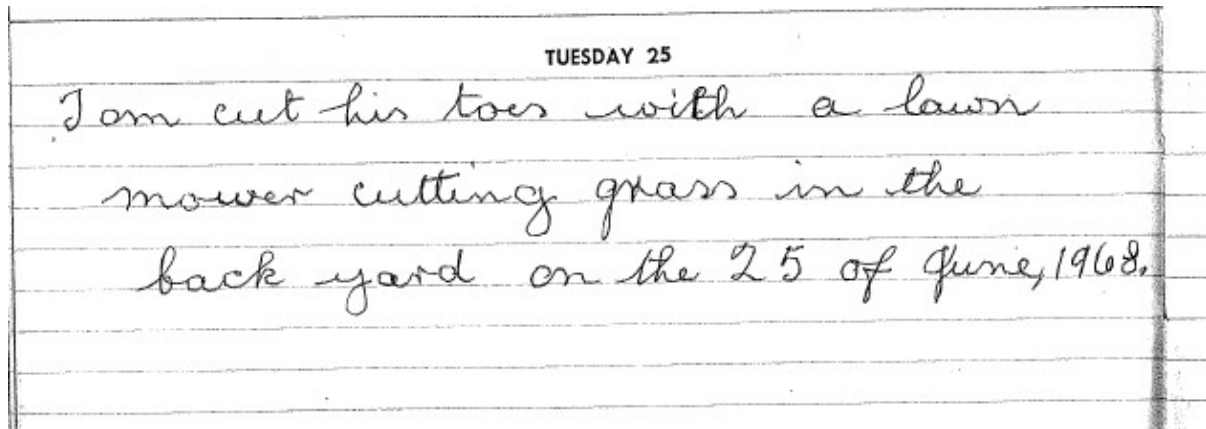 TUESDAY 25
Tom cut his toes with a lawn
mower cutting grass in the
back yard on the 25 of June, 1968.